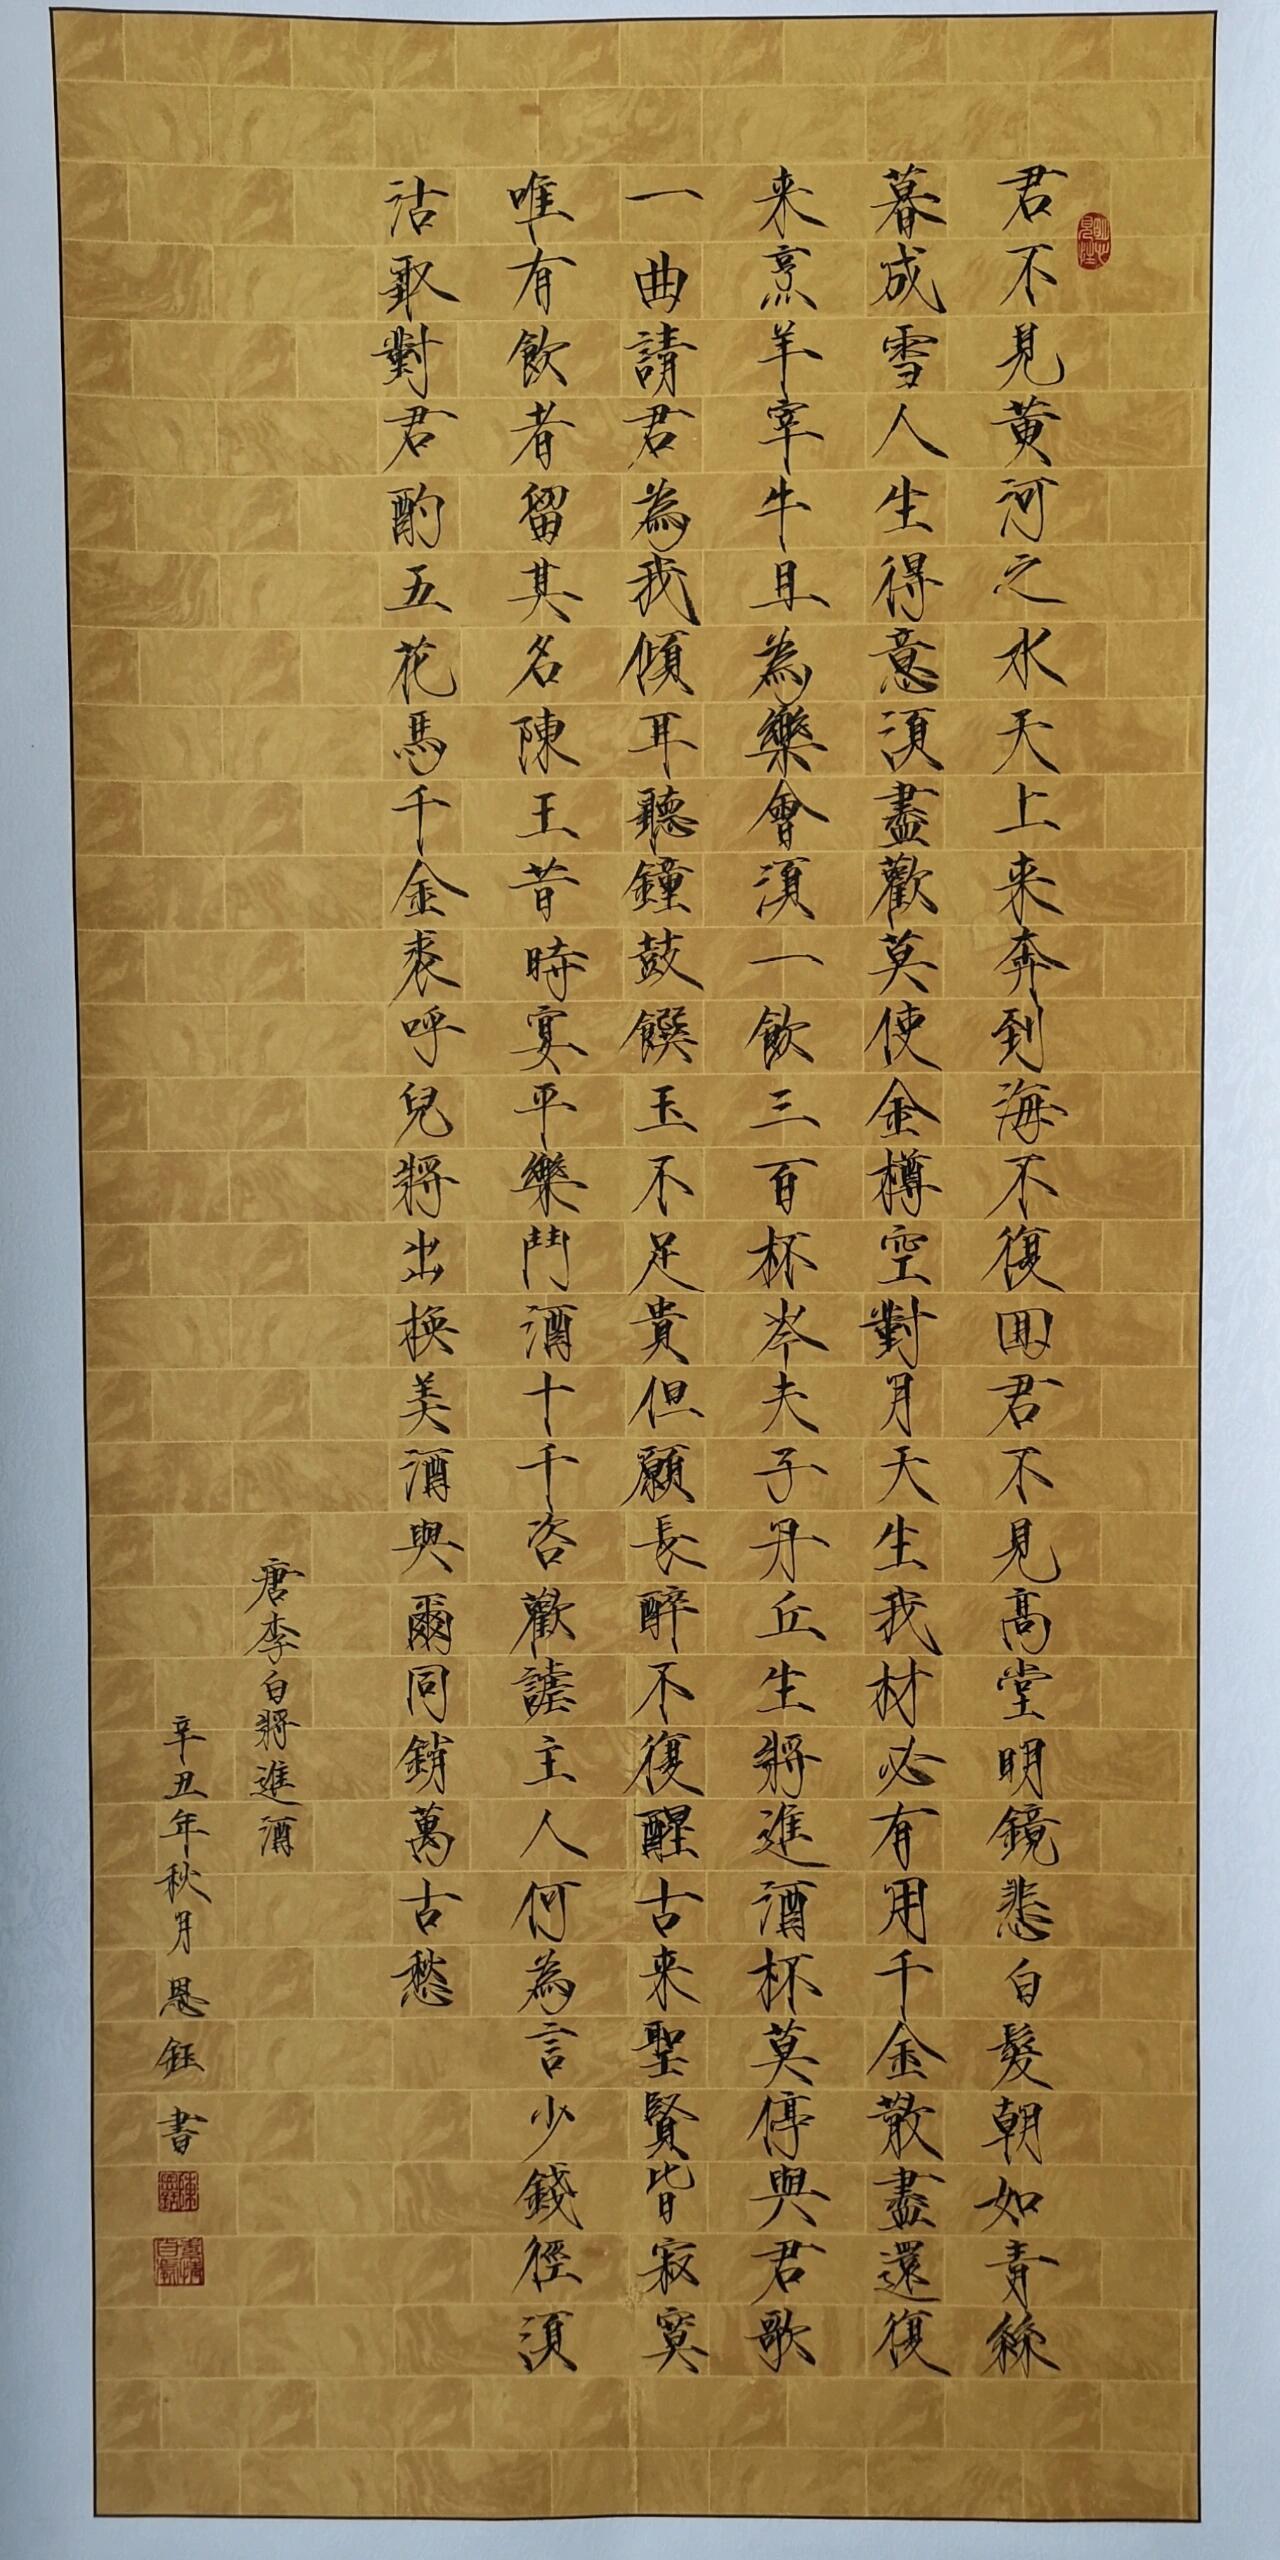 君不見黄河之水天上来奔到海不復回君不見高堂明鏡悲白髮朝如青絲
暮成雪人生得意須盡歡莫使金樽空對月天生我材必有用千金散盡還復
来烹羊宰牛且為樂會須一飲三百杯岑夫子丹丘生將進酒杯莫停與君歌
一曲請君為我傾耳聽鐘鼓饌玉不足貴但願長醉不復醒古来聖賢皆寂寞
唯有飲者留其名陳王昔時宴平樂鬥酒十千恣歡謔主人何為言少錢徑須
沽取對君酌五花馬千金裘呼兒將出換美酒與爾同銷萬古愁
唐李白將進酒
辛丑年秋月恩鈺書